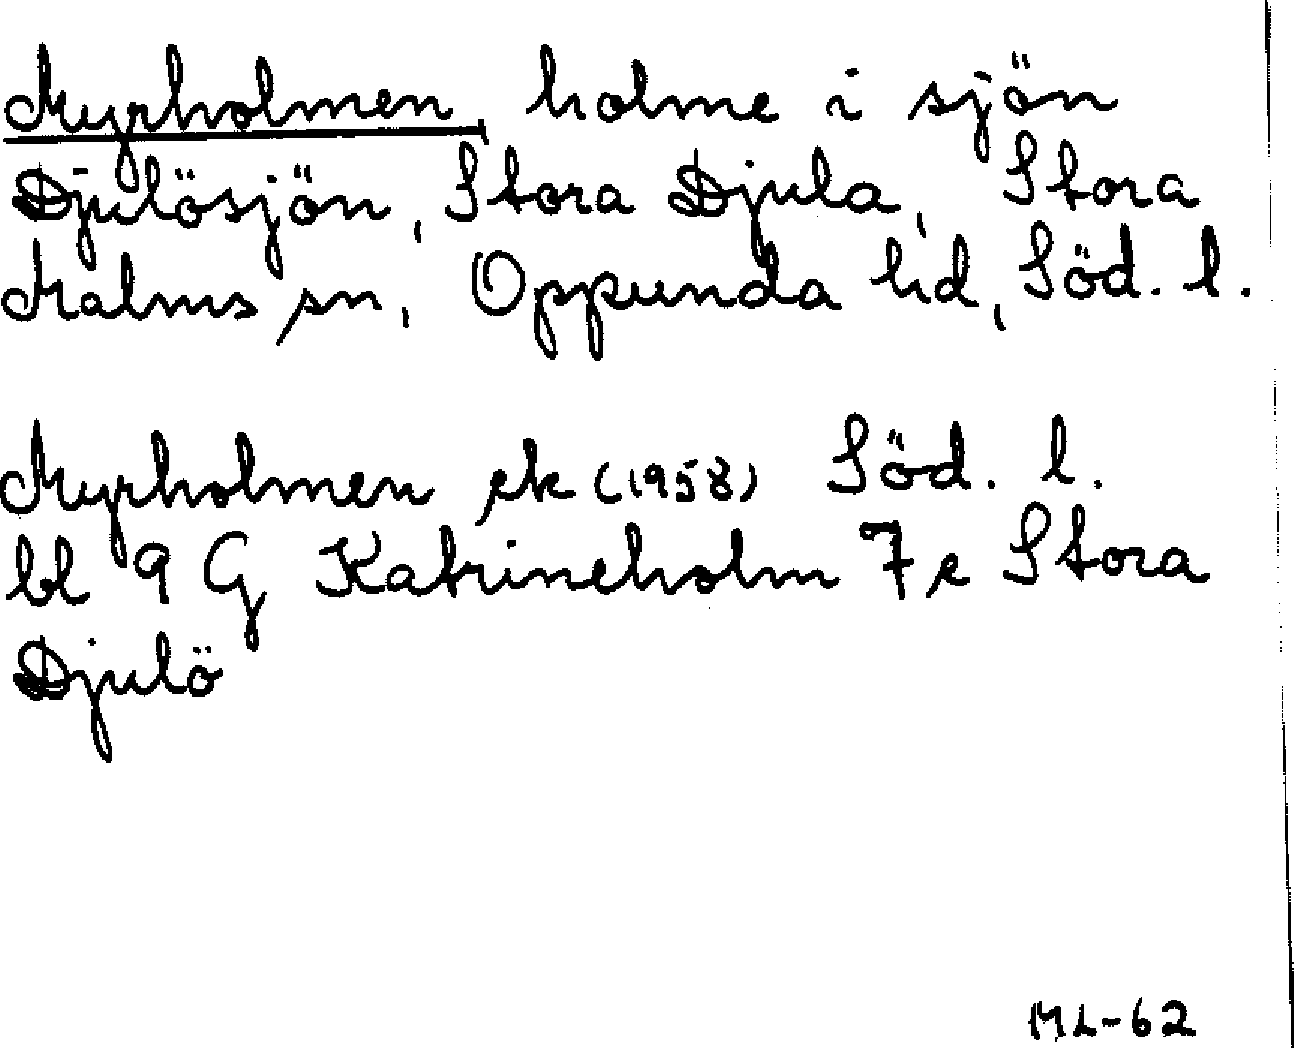 Myrholmen, holme i sjön
Djulösjön, Stora Djula, Stora
Malms sn, Oppunda hd, Söd. l.
Myrholmen ek (1958) Söd. l.
bl 9 G Katrineholm 7e Stora
Djulö
ML-62